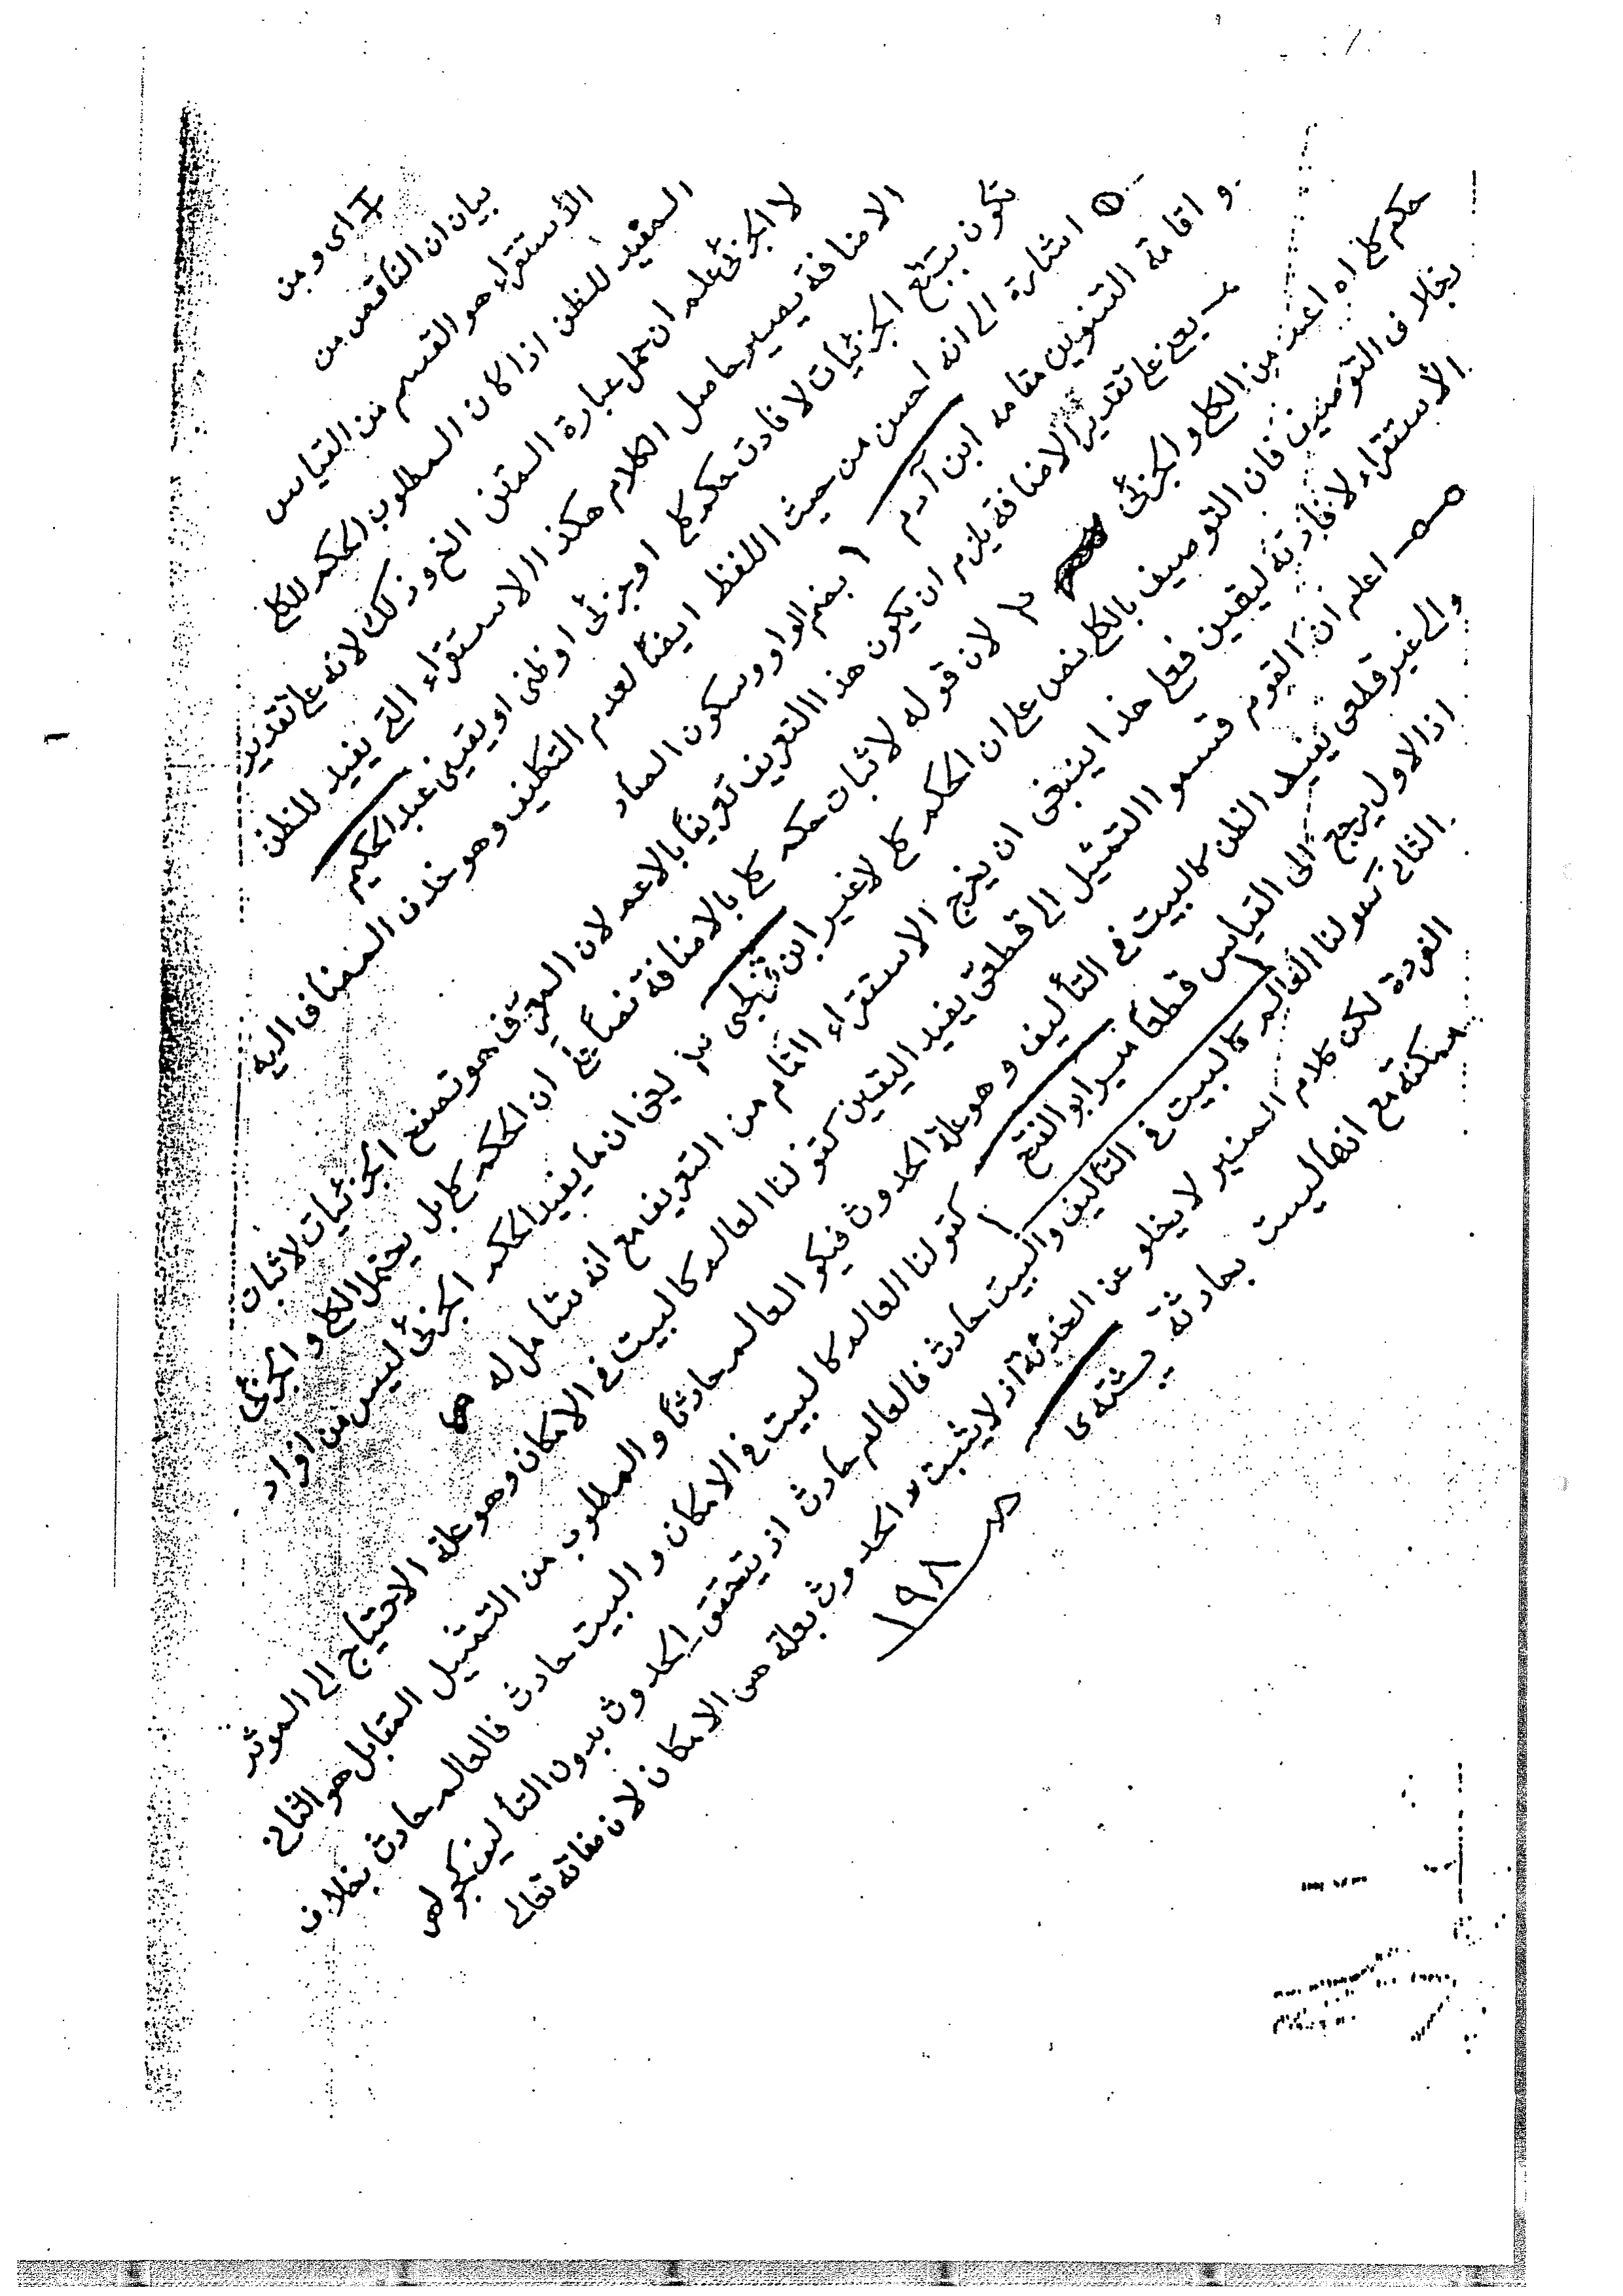 اى و من
بيان ان الناقص من
الأستقراء هو القسم من القياس
المفيد للظن اذا كان المطلوب الحكم الكلي
لا الجزئي علم ان حمل عبارة المتن الخ وذلك لانه على تقدير
الاضافة يصير حاصل الكلام هكذا الاستقراء التي يفيد للظن
تكون بتتبع الجزئيات لافادة حكم كلي او جزئي او ظني او يقيني عبد الحكيم
۵ اشارة الى انه احسن من حيث اللفظ ايضًا لعدم التكليف وهو حذف المضاف اليه
و اقامة التنوين مقامه ابن آدم ١ بضم الواو وسكون الصاد
يعني على تقدير الاضافة يلزم ان يكون هذا التعريف تعريفًا بالاعم لان المعرّف هو تصفح الجزئيات لاثبات
حكم كلي اه اعنى من الكلي و الجزئي لان قوله لاثبات حكم كلي بالاضافة نصًا في ان الحكم كلي بل يحتمل الكلي و الجزئي
بخلاف التوصيف فان التوصيف بالكلي نص على ان الحكم كلي لاغير ابن يعني ان ما يفيد الحكم الجزئي ليس من افراد
الأستقراء لافادته ليقين فعلى هذا ينبغي ان يخرج الاستقراء التام من التعريف مع انه شامل له
اعلم ان القوم قسموا التمثيل الى قطعى يفيد اليقين كقولنا العالم كالبيت في الامكان وهو علة الاحتياج الى الموثر
والى غير قطعى يفيد الظن كالبيت في التأليف وهو علة الحدوث فيكو العالم حادثًا و المطلوب من التمثيل المقابل هو الثاني
اذ الاول يرجع الى القياس قطعًا مير ابو الفتح كقولنا العالم كالبيت في الامكان و البيت حادث فالعالم حادث بخلاف
الثاني كقولنا العالم كالبيت في التأليف والبيت حادث فالعالم حادث اذ يتحقق الحدوث بدون التأليف كجو
لكن كلام المنير لا يخلو عن الخدشة اذ لا يثبت الحدوث بعلة هى الامكان لان صفاته تعالى
ممكنة مع انها ليست بحادثة
١٩٨